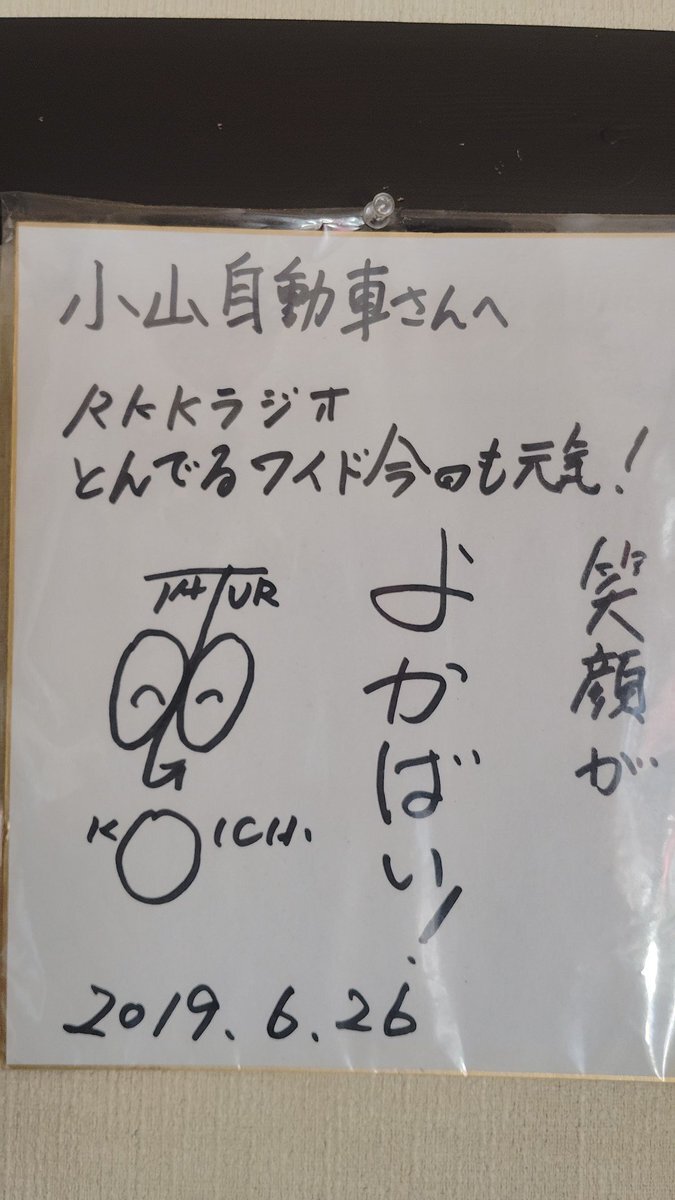 小山自動車さんへ
RKKラジオ
とんでるワイド今日も元気!
笑顔が
よかばい!
TA UR
G
KOICHI
2019.6.26